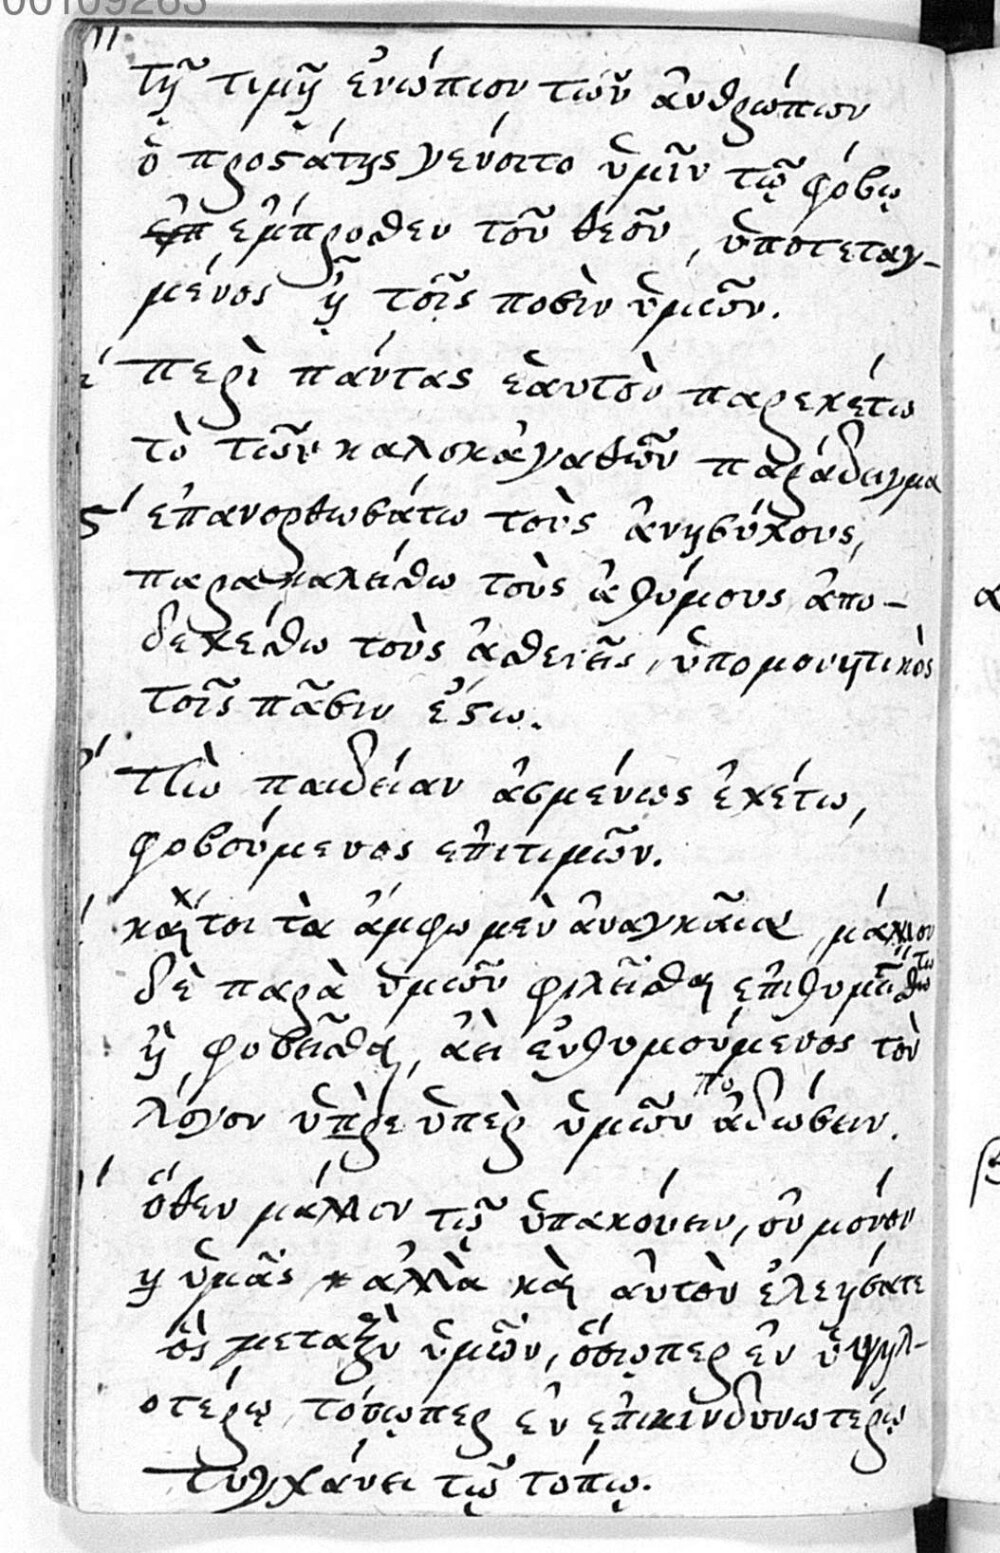 00109283
τῇ τιμῇ ἐνώπιον τῶν ἀνθρώπων
ὁ προστάτης γένοιτο ὑμῖν τῷ φόβῳ
ἐμπροθεν τοῦ θεοῦ, ὑποτεταγ-
μένος ᾖ τοῖς ποσὶν ὑμῶν.
περὶ πάντας ἑαυτὸν παρεχέτω
τὸ τῶν καλοκἀγαθῶν παράδειγμα
ς´ ἐπανορθωσάτω τοὺς ἀνησύχους,
παρακαλείσθω τοὺς ἀθύμους ἀπο-
δεχέσθω τοὺς ἀσθενεῖς, ὑπομονητικὸς
τοῖς πᾶσιν ἔστω.
ζ´ τὴν παιδείαν ἀσμένως ἐχέτω,
φοβούμενος ἐπιτιμῶν.
καίτοι τὰ ἄμφω μὲν ἀναγκαῖα, μᾶλλον
δὲ παρὰ ὑμῶν φιλεῖσθαι ἐπιθυμείτω
ἢ φοβεῖσθαι, ἀεὶ ἐνθυμούμενος τὸν
λόγον ὑπὲρ ὑμῶν ἀποδώσειν.
ὅθεν μᾶλλον τῷ ὑπακούειν, οὐ μόνον
ὑμᾶς ἀλλὰ καὶ αὐτὸν ἐλεήσατε
ὃς μεταξὺ ὑμῶν, ὅσῳπερ ἐν ὑψηλ-
οτέρῳ, τόσῳπερ ἐν ἐπικινδυνωτέρῳ
τυγχάνει τῷ τόπῳ.